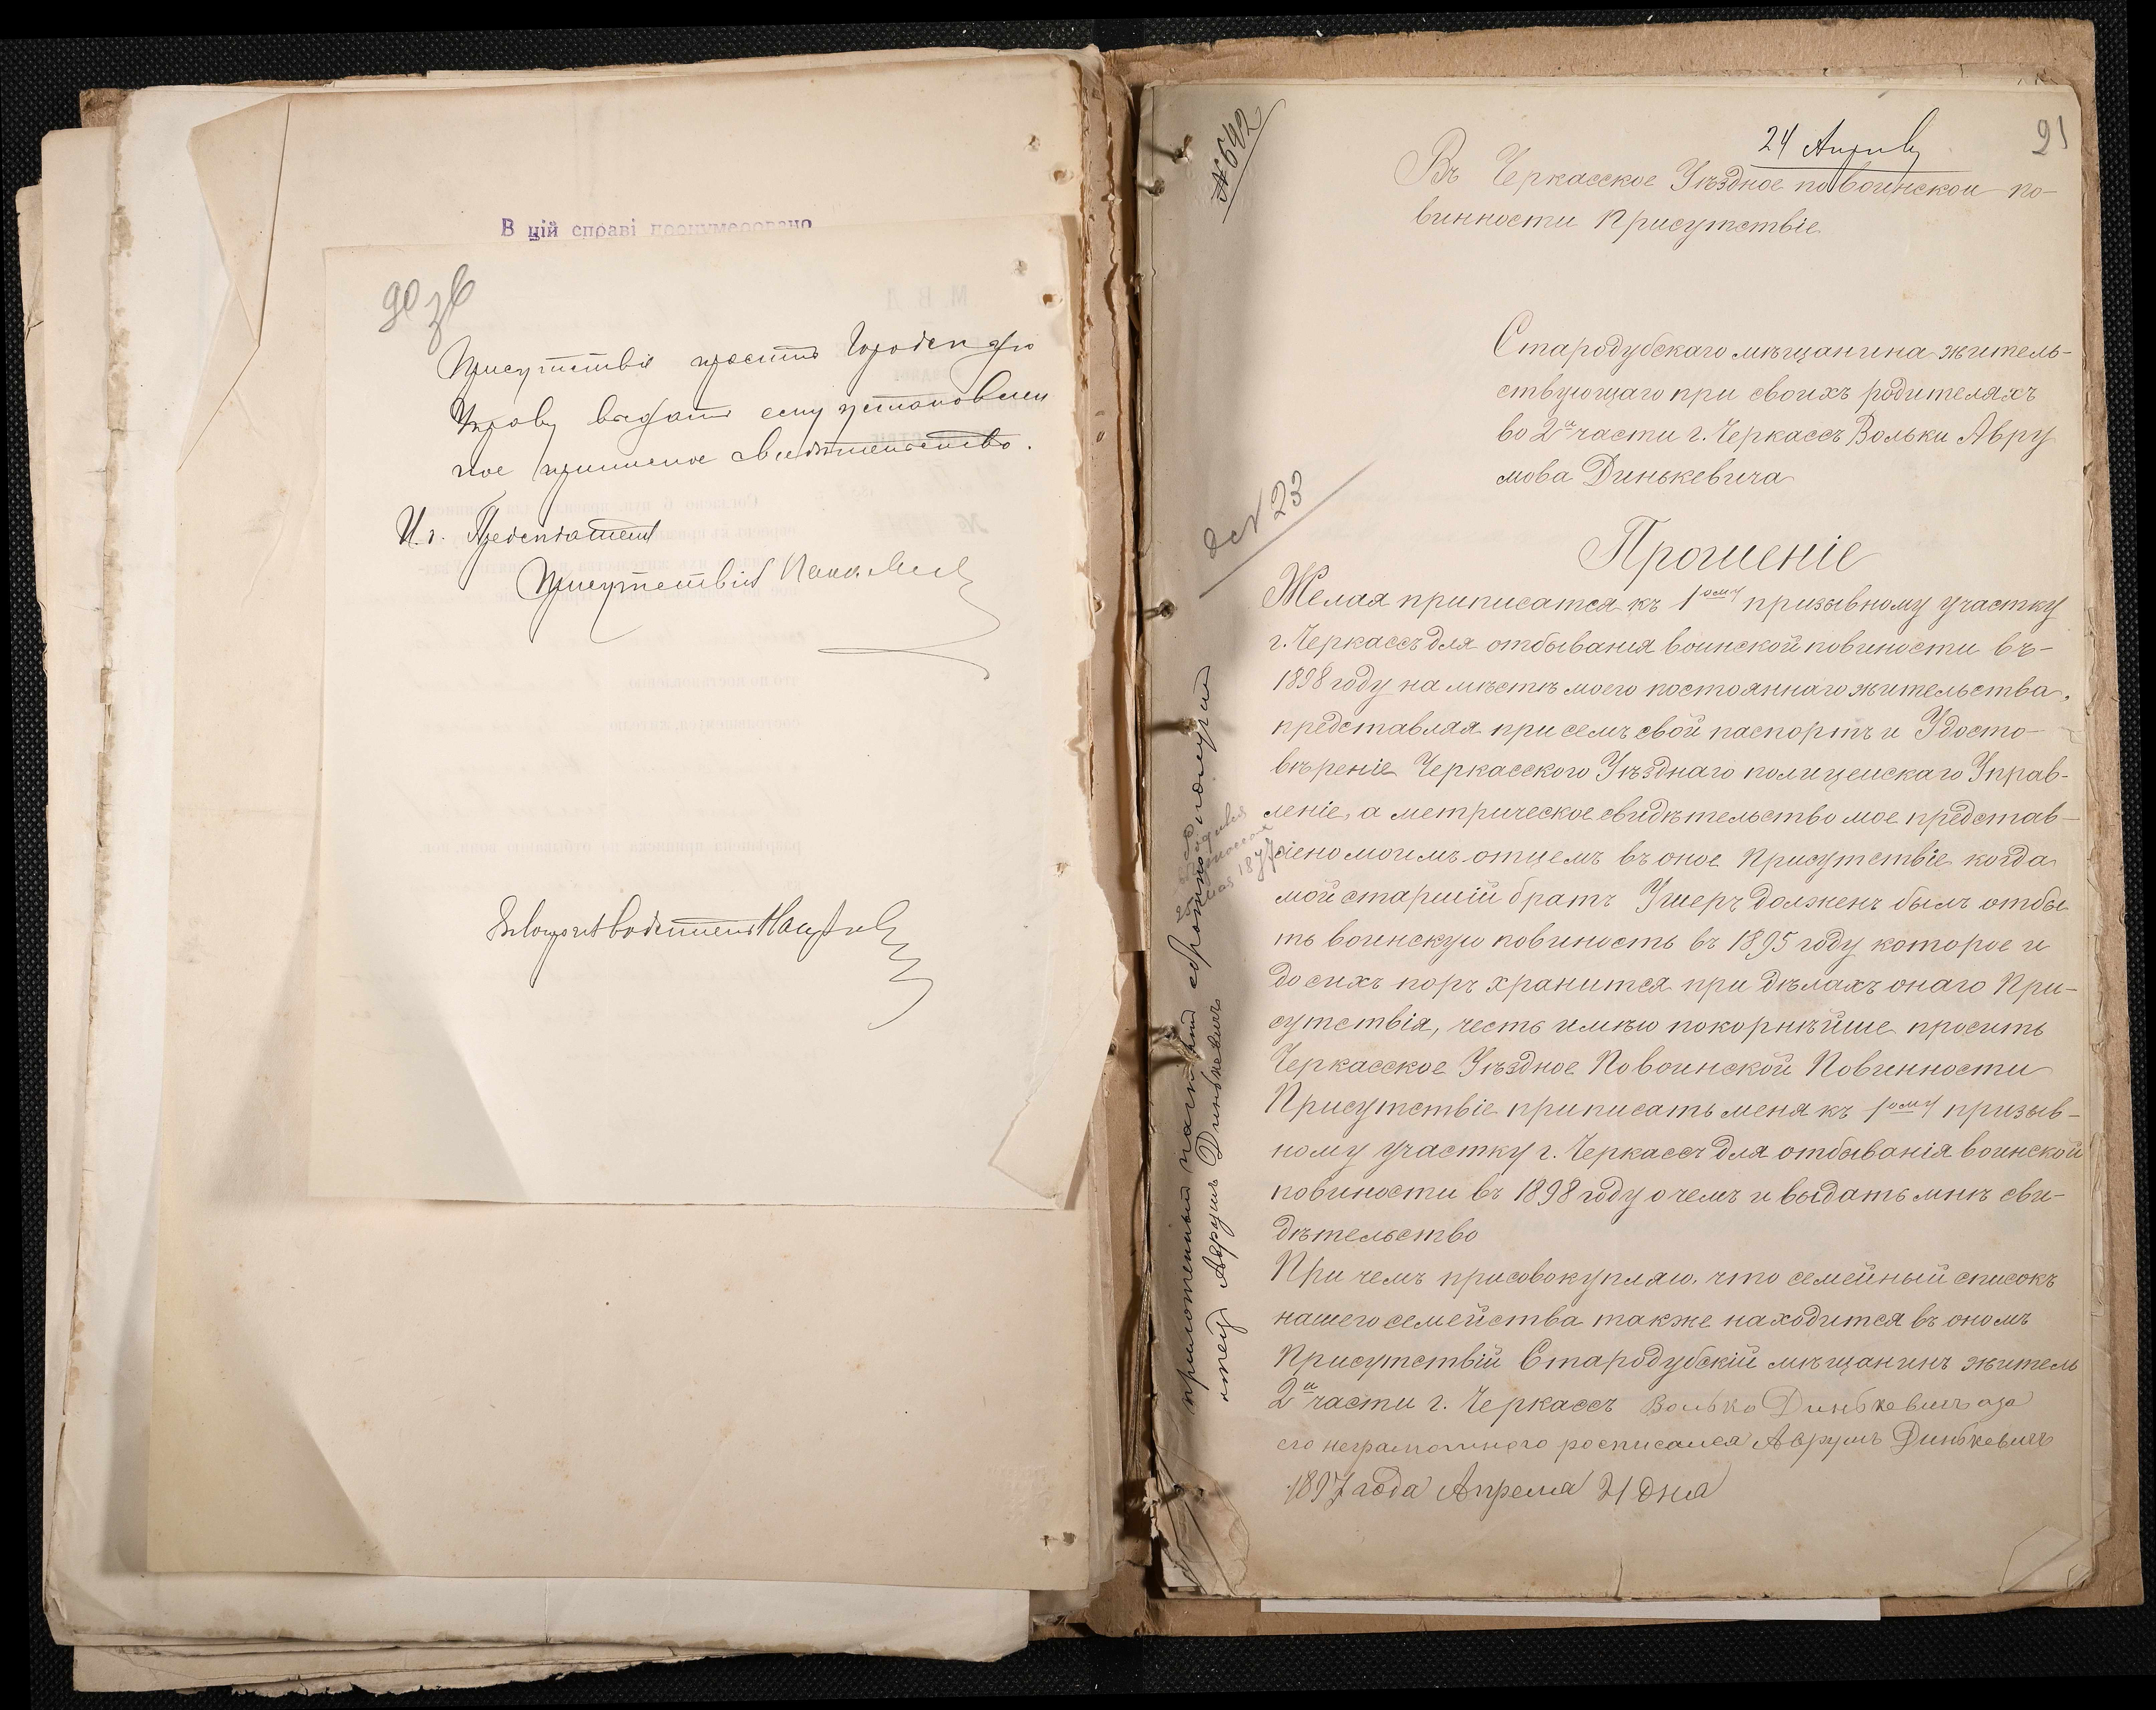 В цій справі пронумеровано
90 зв
Присутствіе проситъ Городскую
Управу выдать ему установлен
ное приписное свидѣтельство.
И. д. Предсѣдателя
Присутствія
Дѣлопроизводитель
21
24 Апрѣля
№ 692
Въ Черкасское Уѣздное по воинской по-
винности Присутствіе
Стародубскаго мѣщанина житель-
ствующаго при своихъ родителяхъ
во 2й части г. Черкассъ Вольки Авру
мова Динькевича
№ 23
Прошеніе
Желая приписатся къ 1ому призывному участку
г. Черкассъ для отбывания воинской повиности въ-
1898 году на мѣстѣ моего постояннаго жительства,
представляя при семъ свой паспортъ и Удосто-
вѣреніе Черкасского Уѣзднаго полицейскаго Управ-
леніе, а метрическое свидѣтельство мое представ-
лено моимъ отцемъ въ оное Присутствіе когда
мой старшій братъ Ушеръ долженъ былъ отбы
ть воинскую повиность въ 1895 году которое и
до сихъ поръ хранится при дѣлахъ онаго При-
сутствія, честь имѣю покорнѣйше просить
Черкасское Уѣздное По воинской Повинности
Присутствіе приписать меня къ 1ому призыв-
ному участку г. Черкассъ для отбыванія воинской
повиности въ 1898 году о чемъ и выдать мнѣ сви-
дѣтельство
При чемъ присовокупляю, что семейный списокъ
нашего семейства также находится въ ономъ
Присутствій Стародубскій мѣщанинъ житель
2й части г. Черкассъ Волько Динькевичъ аза
его неграмотного росписался Аврумъ Динькевичъ
1897 года Апреля 21 дня
приложенный паспортъ обратно получилъ
отецъ Аврумъ Динькевичъ